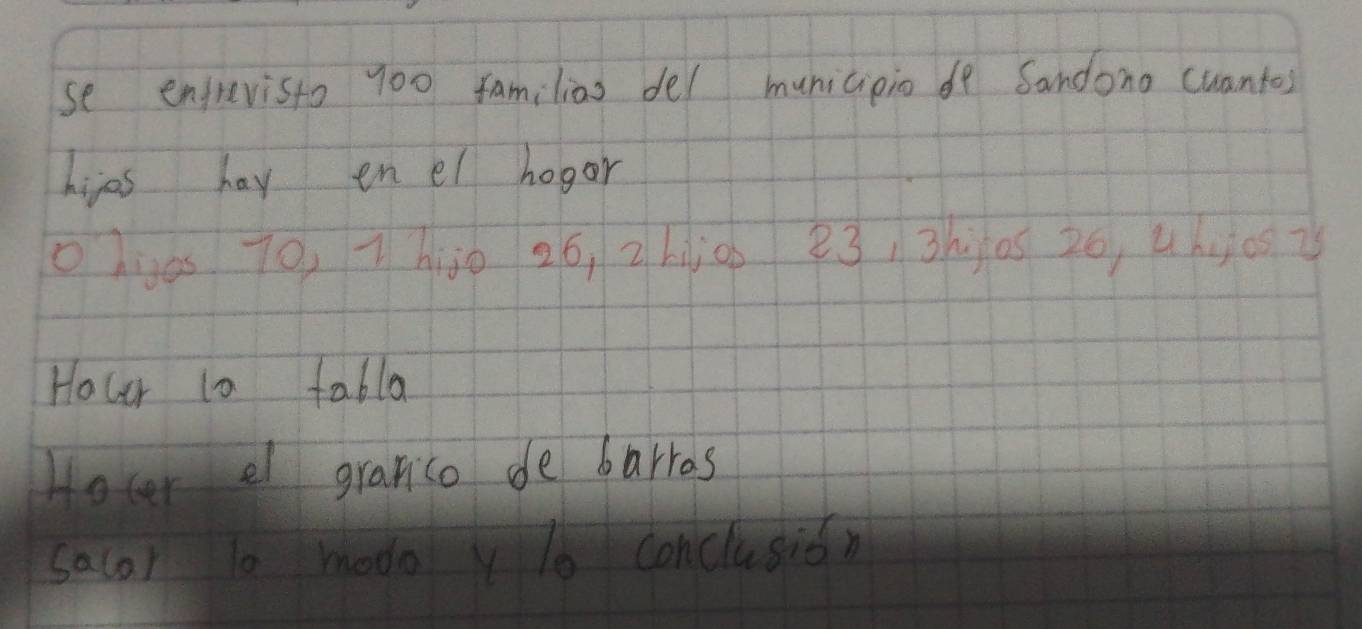 se entrevisto 100 familias del municipio de Sandona cuantos
hijos hay en el hogar
0 hijos 10, 1 hijo 26, 2 hijos 23, 3 hijos 26, 4 hijos
Hacer la tabla
Hacer el grafico de barras
sacar la moda y la conclusión